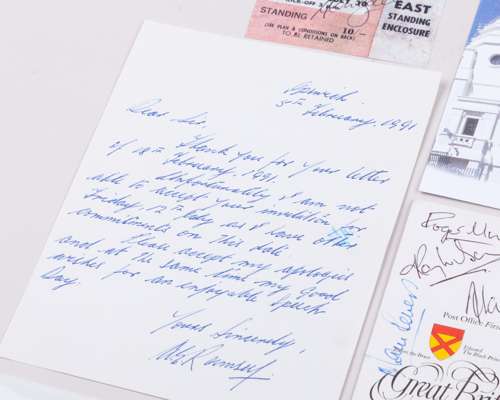 KICK-OFF
JULY 30
EAST
STANDING
STANDING
ENCLOSURE
(SEE PLAN & CONDITIONS ON BACK)
TO BE RETAINED
10/-
Ipswich.
5th February. 1991
Dear Sir,
Thank you for your letter
of 18th February. 1991.
Unfortunately I am not
able to accept your invitation for
Friday 12 July as I have other
commitments on this date.
Please accept my apologies
and at the same time my good
wishes for an enjoyable Speech
Day.
Yours Sincerely,
Post Office First
Edward
The Black
Great Brit